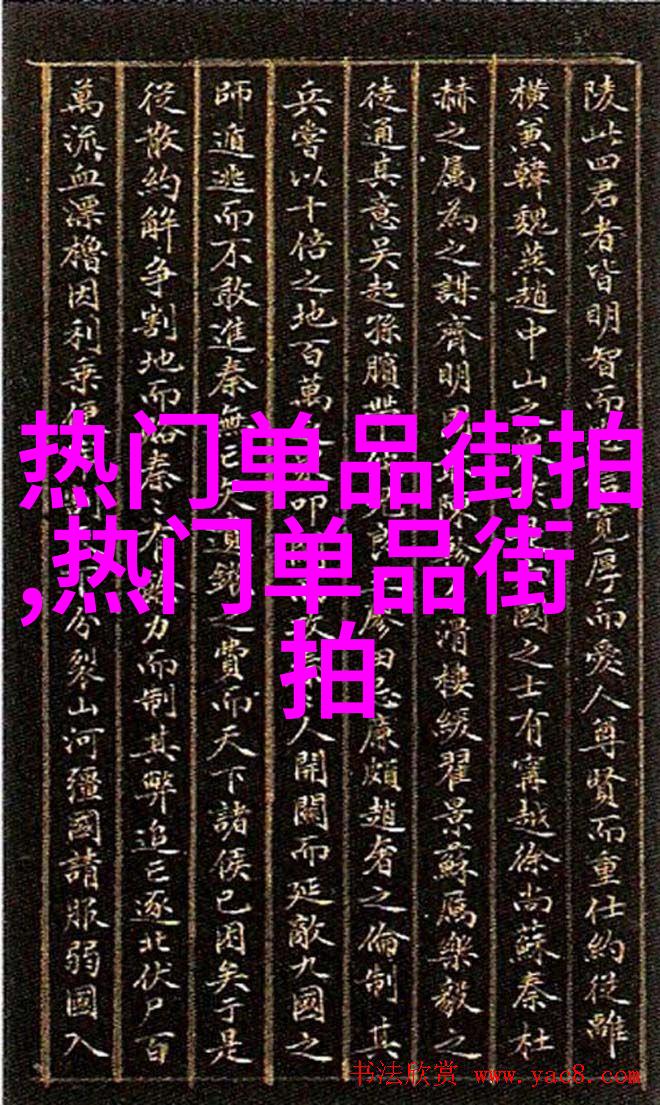 陵此四君者皆明智而寬厚而愛人尊賢而重仕約從離
橫兼韓魏燕趙中山之國之士有甯越徐尚蘇秦杜
赫之屬為之謀齊明滑樓緩翟景蘇厲樂毅之
徒通其意吳起孫臏廖田忌廉頗趙奢之倫制其
兵嘗以十倍之地百萬叩人開關而延敵九國之
師遁逃而不敢進秦無亡矢遺鏃之費而天下諸侯已困矣于是
從散約解爭割地而賂秦々有力而制其弊追亡逐北伏尸百
萬流血漂櫓因利乘便分裂山河彊國請服弱國入
热门单品街拍
,热门单品街
拍
书法欣赏 www.yac8.com